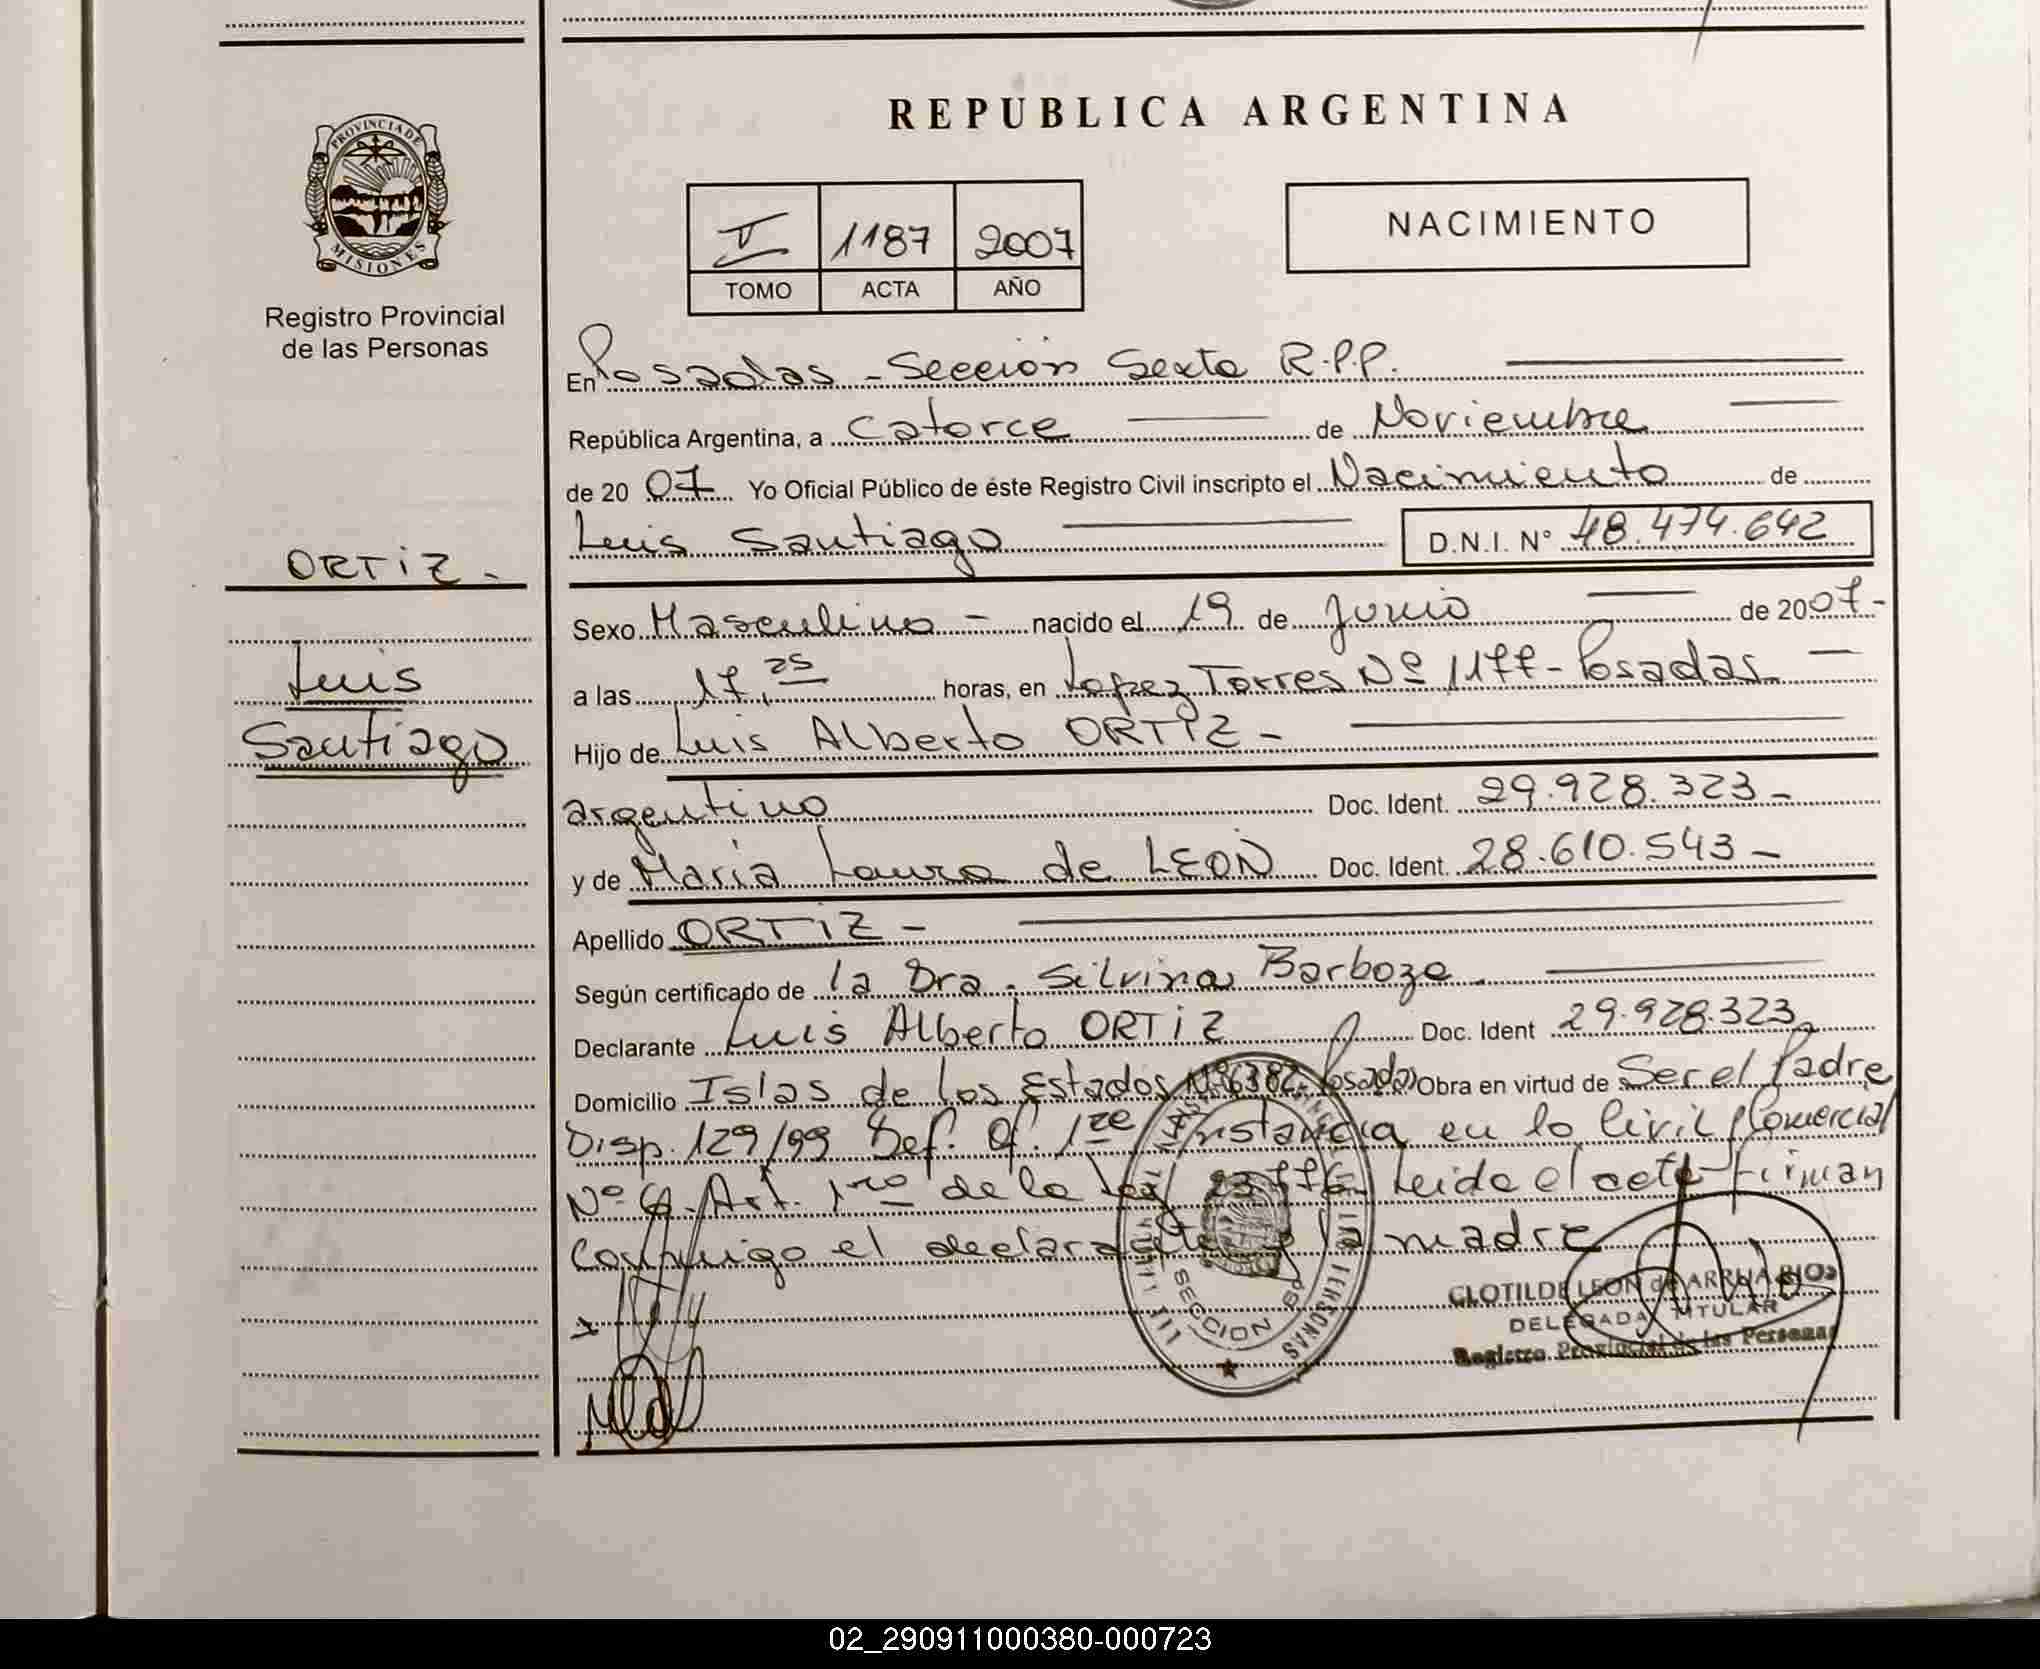 REPUBLICA ARGENTINA
PROVINCIA DE
MISIONES
Registro Provincial
de las Personas
1187 2007
TOMO ACTA AÑO
NACIMIENTO
En Posadas - Sección Sexta R.P.P.
República Argentina, a catorce de Noviembre
de 2007 Yo Oficial Público de éste Registro Civil inscripto el Nacimiento de
Luis Santiago D.N.I. N° 48.474.642
ORTIZ -
Luis
Santiago
Sexo Masculino - nacido el 19 de Junio de 2007 -
a las 17,25 horas, en Lopez Torres Nº 1177 - Posadas
Hijo de Luis Alberto ORTIZ -
argentino Doc. Ident. 29.928.323 -
y de María Laura de LEON Doc. Ident. 28.610.543 -
Apellido ORTIZ -
Según certificado de la Dra. Silvina Barboza
Declarante Luis Alberto ORTIZ Doc. Ident 29.928.323
Domicilio Islas de los Estados Nº 6382 Posadas Obra en virtud de Ser el Padre
Disp. 129/99 Def. Of. 1ra Instancia en lo Civil y Comercial
Nº Art. 1ro de la Ley Leida el acta firman
conmigo el declarante y la madre
SECCION
CLOTILDE LEON de ARRUA RIOS
DELEGADA TITULAR
Registro Provincial de las Personas
02_290911000380-000723